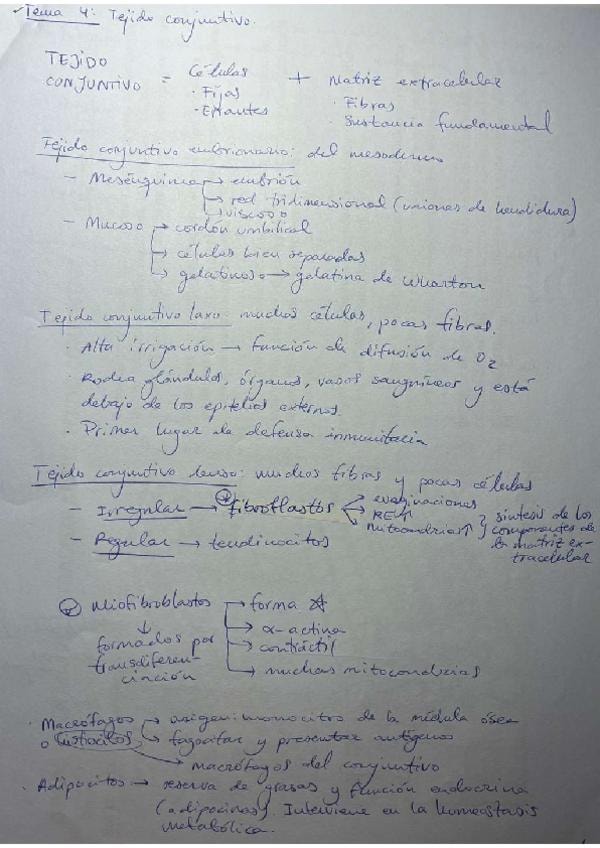 Tema 4: Tejido conjuntivo.
TEJIDO CONJUNTIVO = Células + Matriz extracelular
· Fijas · Fibras
· Errantes · Sustancia fundamental
Tejido conjuntivo embrionario: del mesodermo
- Mesénquima → embrión
→ red tridimensional (uniones de hendidura)
→ viscoso
- Mucoso → cordón umbilical
→ células bien separadas
→ gelatinoso → gelatina de Wharton
Tejido conjuntivo laxo: muchas células, pocas fibras.
· Alta irrigación → función de difusión de O2
· Rodea glándulas, órganos, vasos sanguíneos y está
debajo de los epitelios externos.
· Primer lugar de defensa inmunitaria
Tejido conjuntivo denso: muchas fibras y pocas células
- Irregular → fibroblastos
evaginaciones
RER↑
mitocondrias↑
} síntesis de los
componentes de
la matriz ex-
tracelular
- Regular → tendinocitos
Miofibroblastos → forma
→ α-actina
→ contráctil
→ muchas mitocondrias
↓
formados por
transdiferen-
ciación
· Macrófagos → origen: monocitos de la médula ósea
o histiocitos → fagocitar y presentar antígenos
→ macrófagos del conjuntivo
· Adipocitos → reserva de grasas y función endocrina
(adipocinas). Interviene en la homeostasis
metabólica.